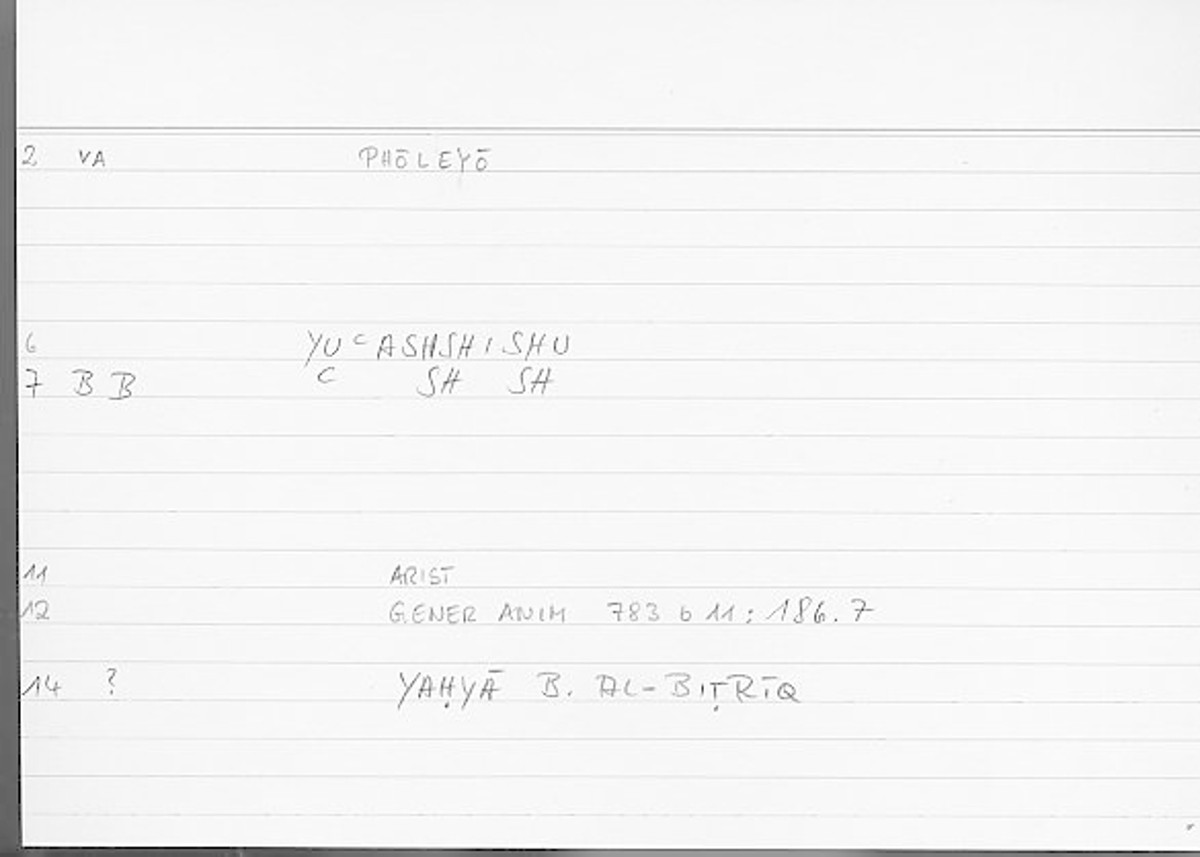 2 VA PHŌLEYŌ
6 YU C ASHSHISHU
7 BB C SH SH
11 ARIST
12 GENER ANIM 783 b 11 : 186.7
14 ? YAḤYĀ B. AL-BIṬRĪQ